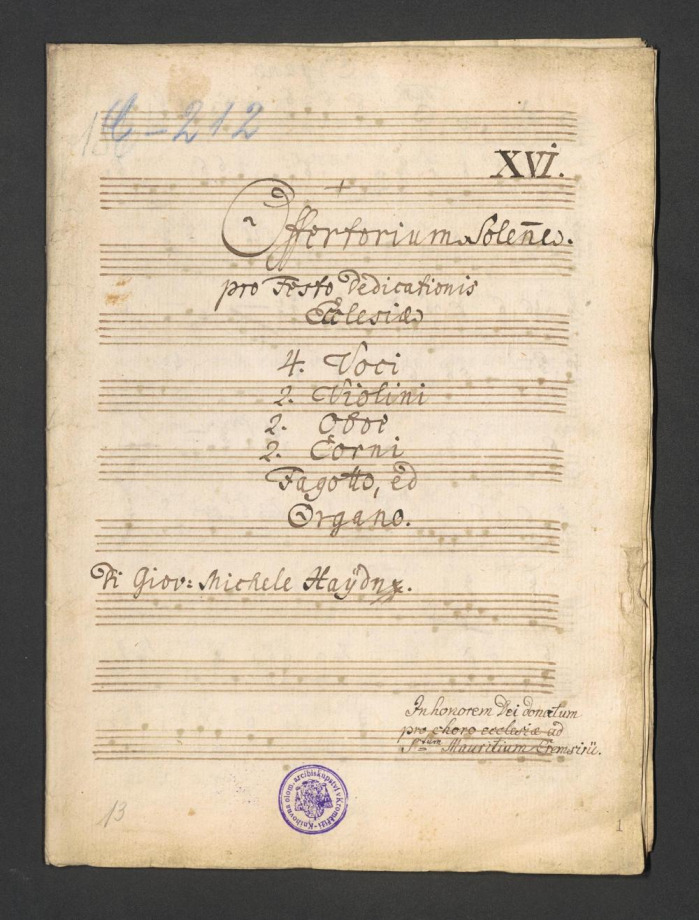 C-212
XVI.
Offertorium Solen̄e.
pro Festo Dedicationis
Ecclesiæ
4. Voci
2. Violini
2. Oboe
2. Corni
Fagotto, ed
Organo.
Di Giov: Michele Haÿdn
In honorem Dei donatum
pro choro ecclesiæ ad
Mauritium Cremsirii.
Knihovna olom. arcibiskupství v Kroměříži
13
1